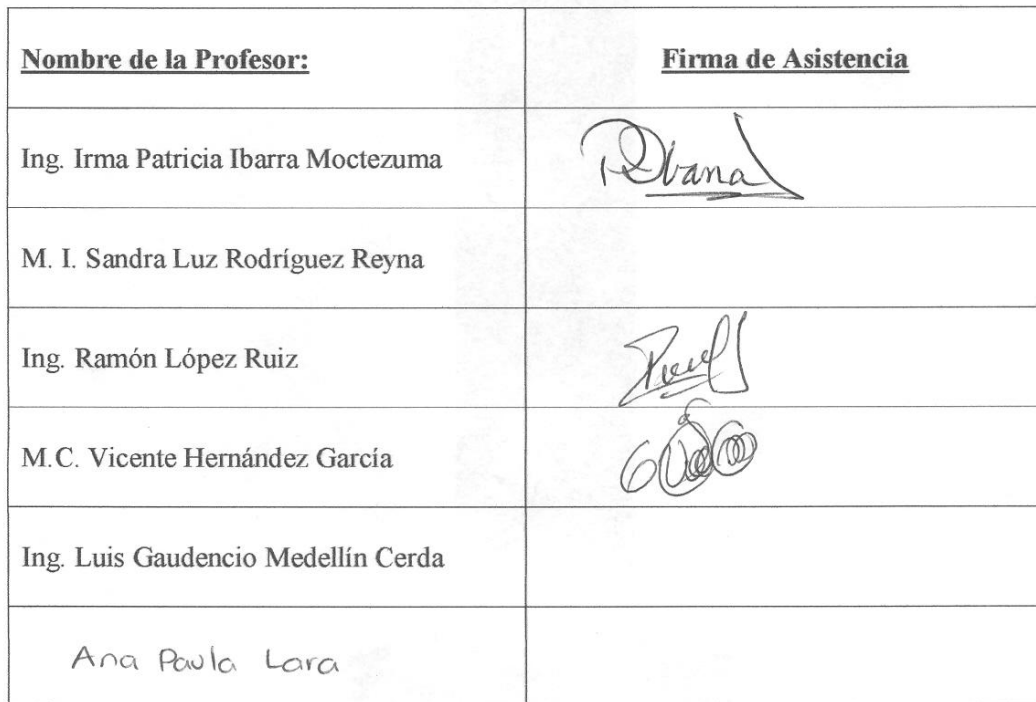 Nombre de la Profesor: Firma de Asistencia
Ing. Irma Patricia Ibarra Moctezuma
M. I. Sandra Luz Rodríguez Reyna
Ing. Ramón López Ruiz
M.C. Vicente Hernández García
Ing. Luis Gaudencio Medellín Cerda
Ana Paula Lara